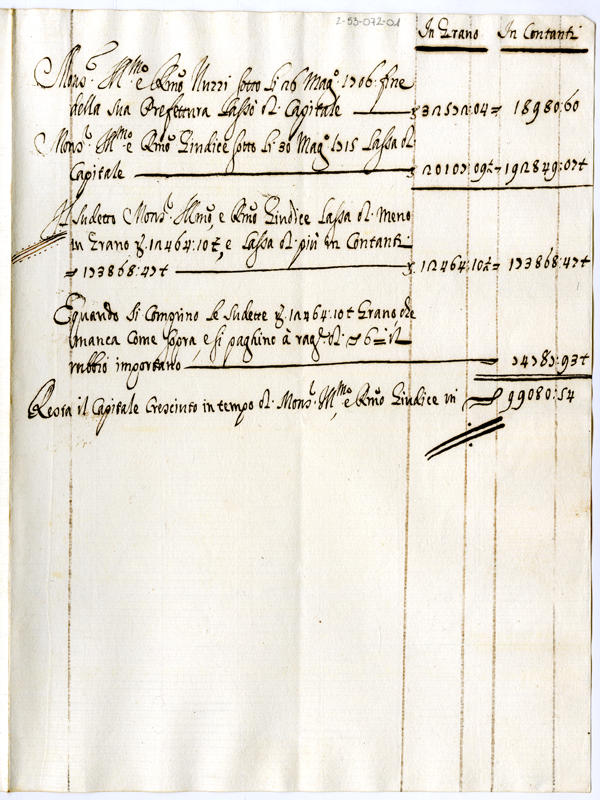 2-53-072-01
In Grano In Contanti
Mons.r Ill.mo e R.mo Nuzzi sotto li 26 Mag.o 1706 fine
della sua Prefettura Lassò di Capitale 32572:04 = 18980:60
Mons.r Ill.mo e R.mo Giudice sotto li 30 Mag.o 1715 Lassa di
Capitale 20107:09½ = 192849:07½
Il sudetto Mons.r Ill.mo, e R.mo Giudice Lassa di meno
in Grano R. 12464:10½, e Lassa di più in Contanti
173868:47½ 12464:10½ = 173868:47½
E quando si Comprino le sudette R. 12464:10½ Grano che
manca Come sopra, e si paghino à rag.e di 6 = il
rubbio importano 74787:93½
Resta il Capitale Cresciuto in tempo di Mons.r Ill.mo, e R.mo Giudice in 99080:54